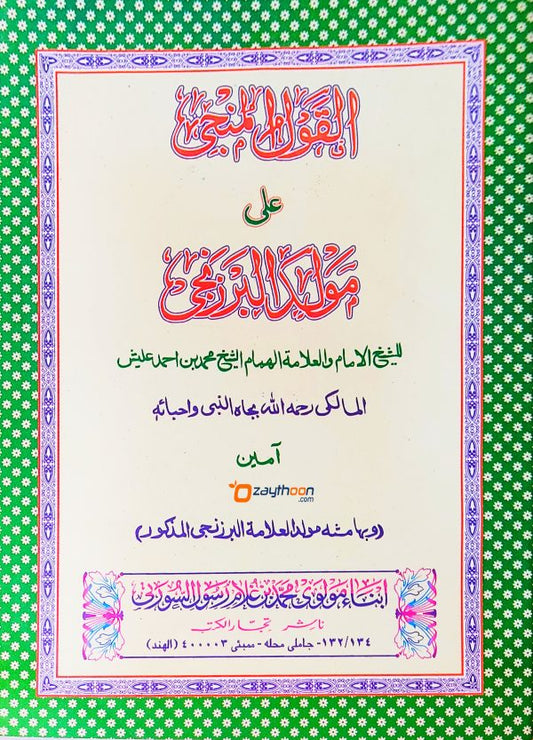 القول المنجي
على
مولد البرزنجي
للشيخ الامام والعلامة الهمام الشيخ محمد بن احمد عليش
المالكى رحمه الله بجاه النبى واحبائه
آمين
Ozaythoon
.com
(وبهامشه مولد العلامة البرزنجى المذكور)
ابناء مولوي محمد بن غلام رسول السورتي
ناشر تجار الكتب
١٣٢/١٣٤- جاملى محله - ممبئى ٤٠٠٠٠٣ (الهند)